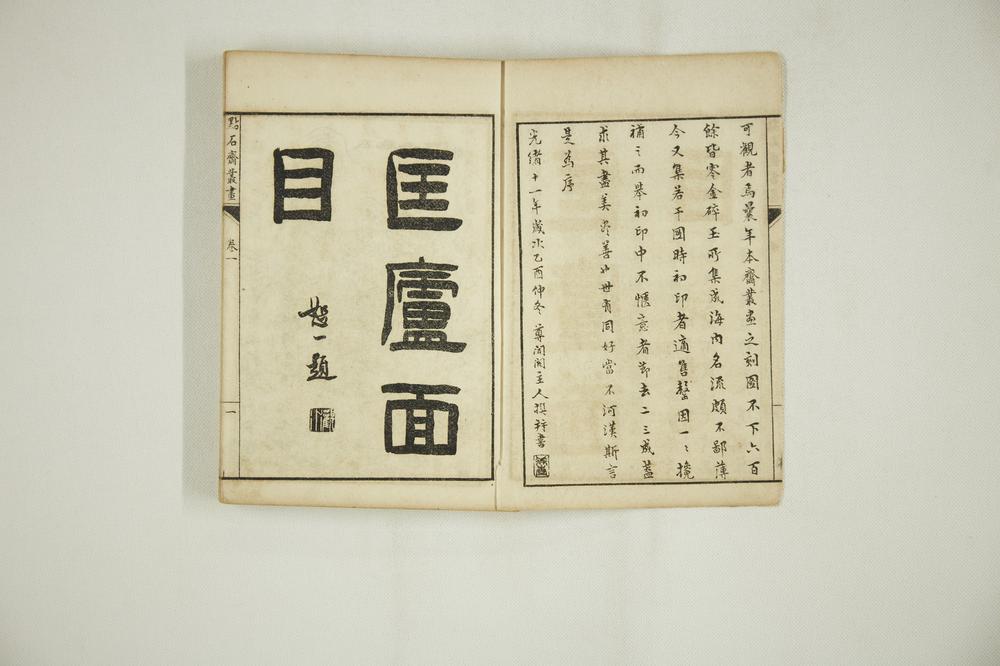 可觀者焉曩年本齋叢畫之刻圖不下六百
餘皆零金碎玉所集成海內名流頗不鄙薄
今又集若干圖時初印者適售罄因一ミ擕
補ミ而舉初印中不愜意者節去二三成蓋
求其盡美盡善也世有同好當不河漢斯言
是為序
光緒十一年歲次乙酉仲冬尊聞閣主人撰并書
匡廬面
目
一題
點石齋叢畫
卷一
一